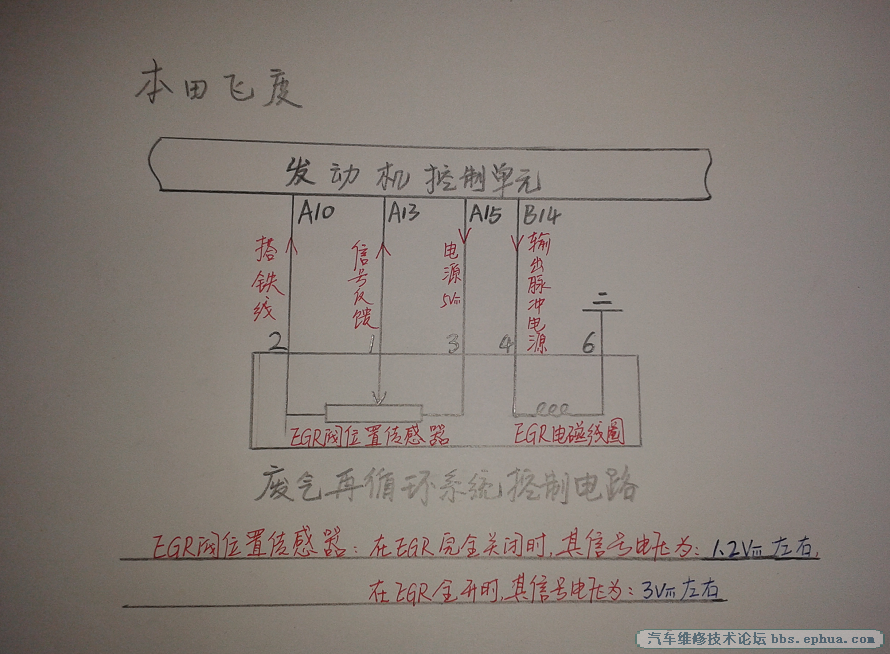 本田飞度
发动机控制单元
A10 A13 A15 B14
搭铁线
信号反馈
电源5V
输出脉冲电源
2 1 3 4 6
EGR阀位置传感器 EGR电磁线圈
废气再循环系统控制电路
EGR阀位置传感器：在EGR完全关闭时,其信号电压为：1.2V 左右,
在EGR全开时,其信号电压为：3V 左右
汽车维修技术论坛 bbs.ephua.com